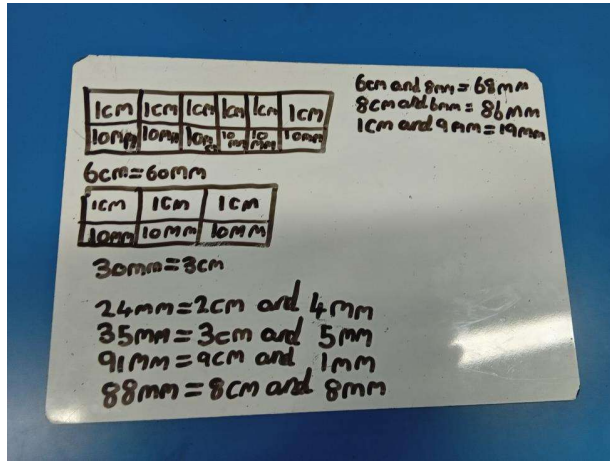 1cm 1cm 1cm 1cm 1cm 1cm
10mm 10mm 10mm 10mm 10mm 10mm
6cm=60mm
1cm 1cm 1cm
10mm 10mm 10mm
30mm=3cm
24mm=2cm and 4mm
35mm=3cm and 5mm
91mm=9cm and 1mm
88mm=8cm and 8mm
6cm and 8mm=68mm
8cm and 6mm=86mm
1cm and 9mm=19mm